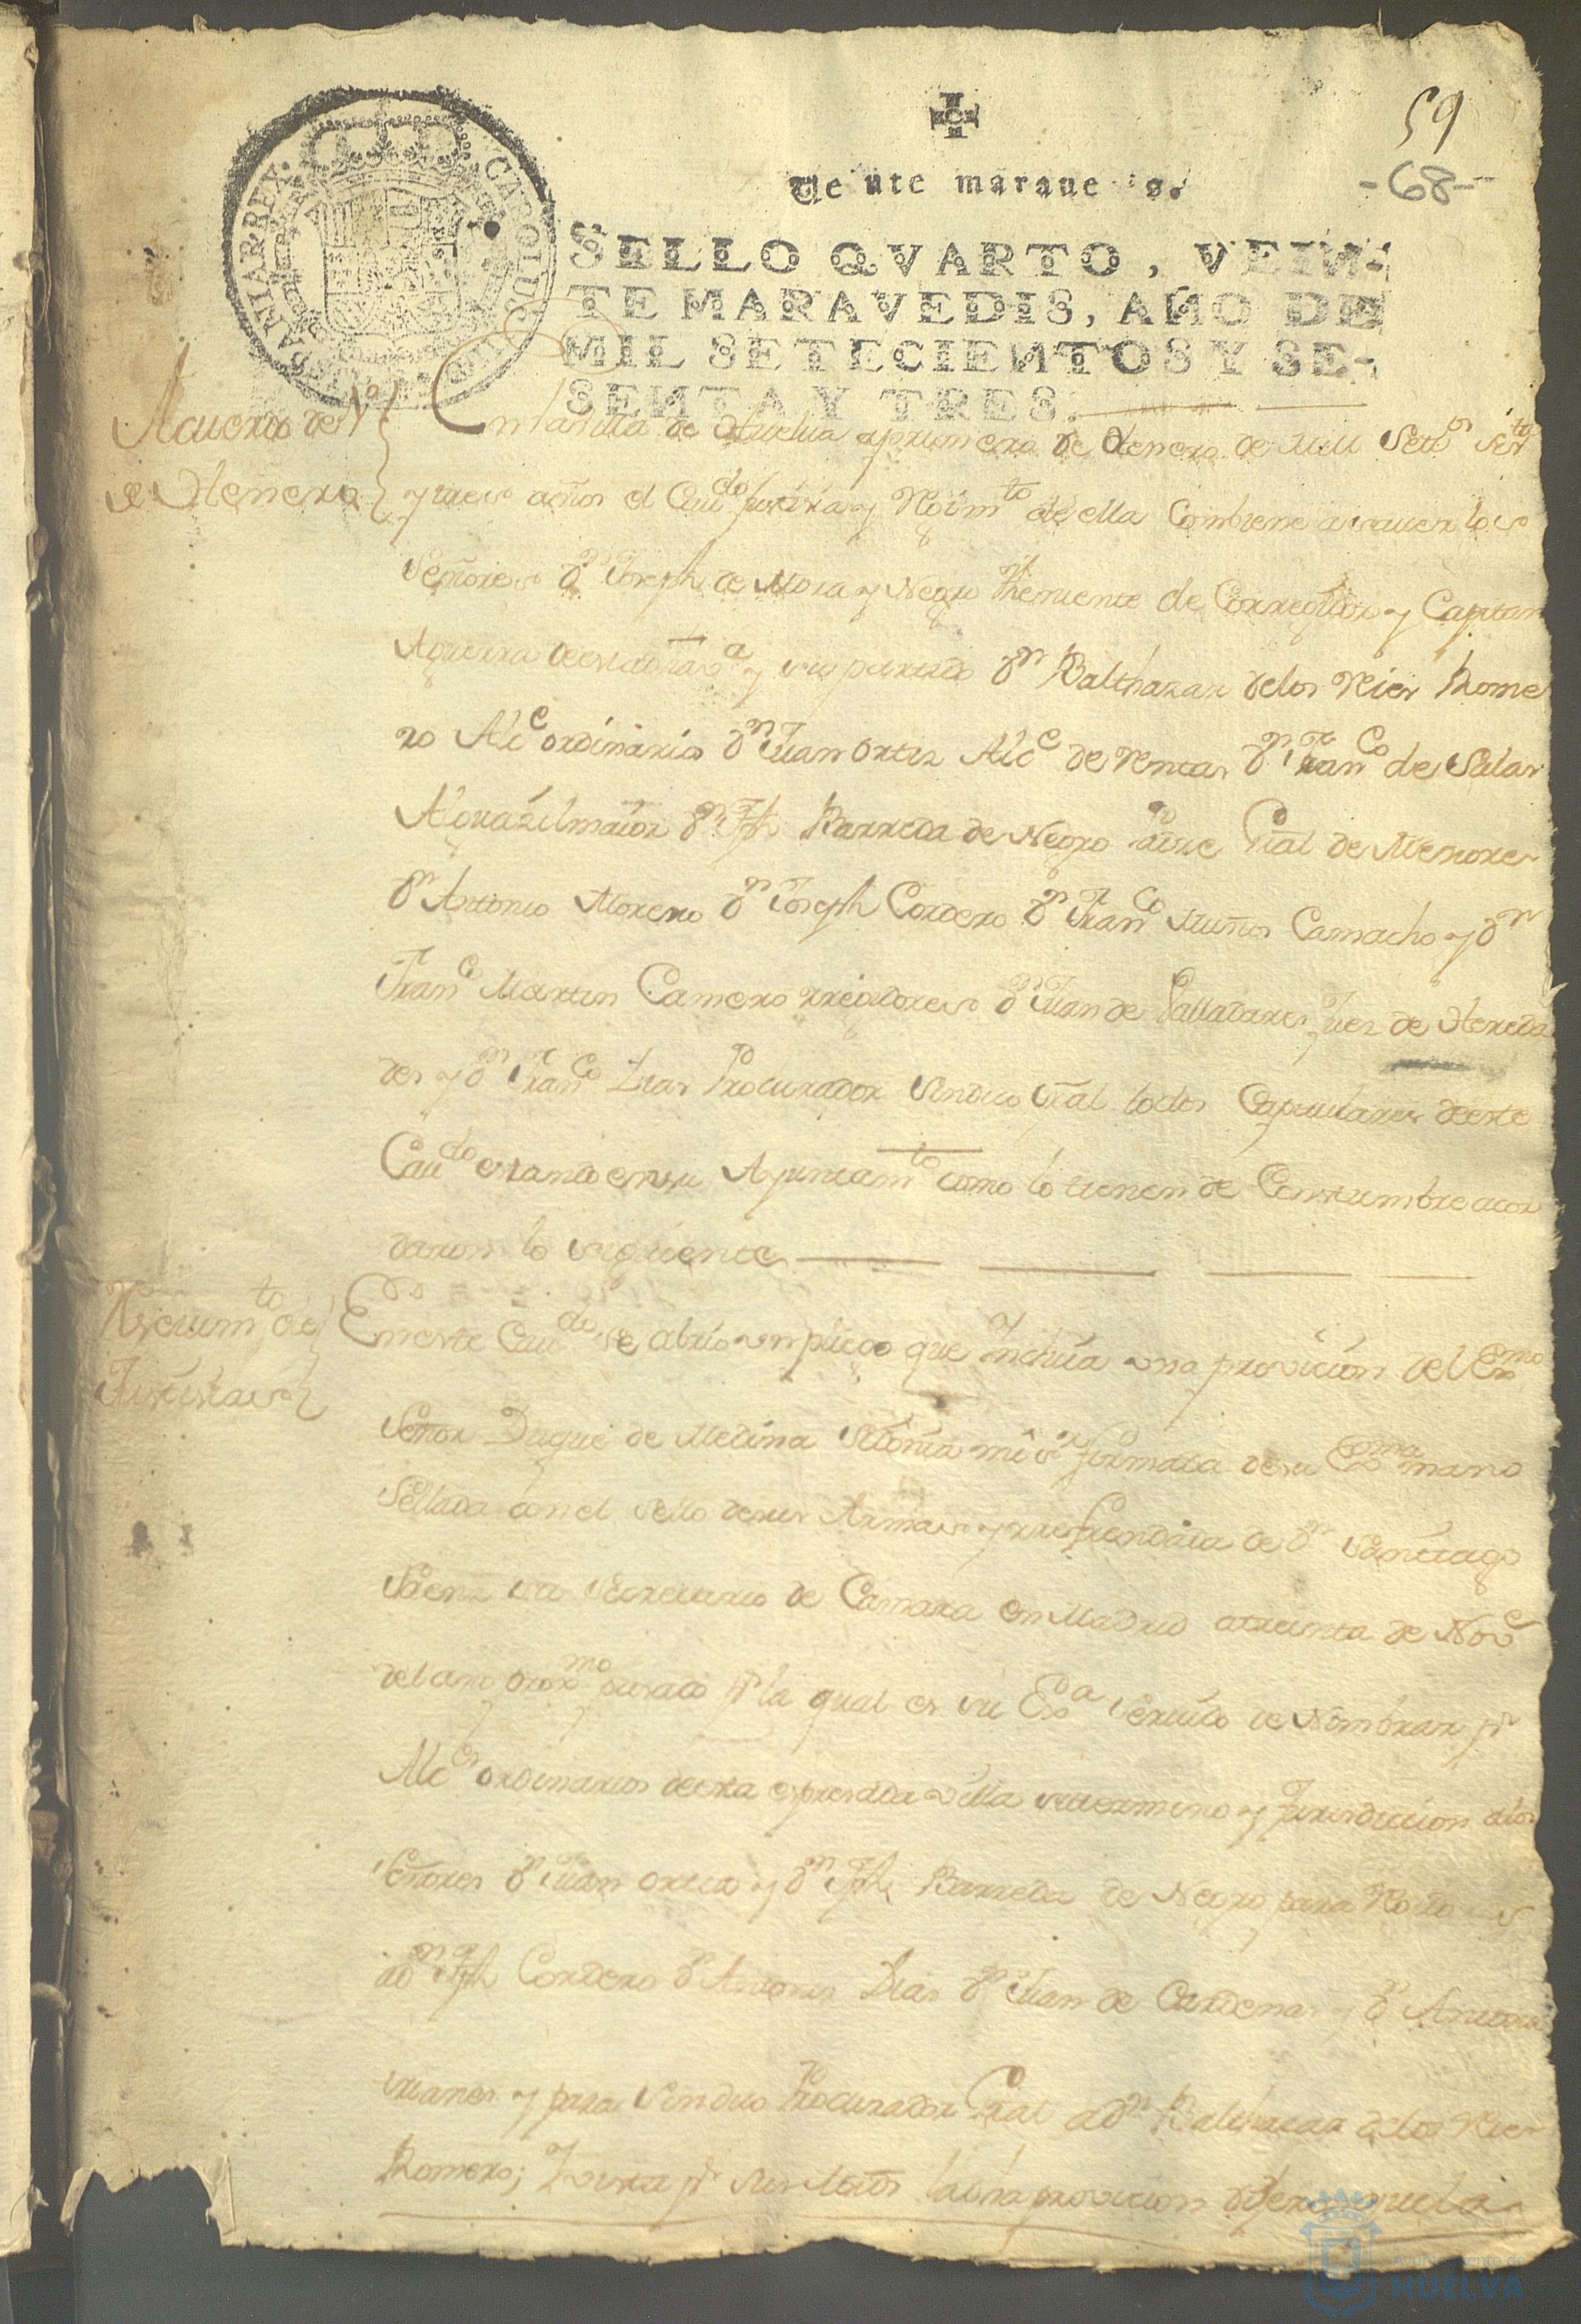 59
-68-
Veinte maravedis.
HISPANIAR. REX. CAROLUS III D. G.
SELLO QVARTO, VEIN-
TE MARAVEDIS, AÑO DE
MIL SETECIENTOS Y SE-
SENTA Y TRES.
Acuerdo de 1º
de Henero
En la villa de Huelva a primero de Henero de mill Setos Seta
y tres años el Cavdo Justizia y Reximto de ella Combiene a saver los
Señores Dn Joseph de Mora y Negro Theniente de Corregidor y Capitan
Aguerra de esta dha va y su partido Dn Balthazar de los Reies Rome
ro Alce ordinario Dn Juan Ortiz Alce de rentas Dn Franco de Salas
Alguazil maior Dn Jph Barreda de Negro Padre Gral de Menores
Dn Antonio Moreno Dn Joseph Cordero Dn Franco Muños Camacho y Dn
Franco Martin Camero rexidores Dn Juan de Valladares Juez de Hereda
des y Dn Franco Dias Procurador Sindico Gral todos Capitulares de este
Cavdo estando en su Ayuntamto como lo tienen de Constumbre acor
daron lo siguiente
Resevimto de
Justisias
En este Cavdo se abrio un pliego que Incluia una provicion del Exmo
Señor Duque de Medina Sidonia mi sr firmada de su Exma mano
Sellada con el sello de sus Armas y refrendada de Dn Santiago
Saenz su Secretario de Camara en Madrid a treinta de Nove
del año proxmo pasado pr la qual es su Exa servido de Nombrar pr
Alces ordinarios de esta espresada villa su termino y Jurisdiccion a los
Señores Dn Juan Ortiz y Dn Jph Barreda de Negro para
a Dn Jph Cordero Dn Antonio Dias Dn Juan de Cardenas y Dn Antonio
y para Sindico Procurador Gral a Dn Balthazar de los Reies
Romero; I vista pr sus la dha provicion
Ayuntamiento de
HUELVA